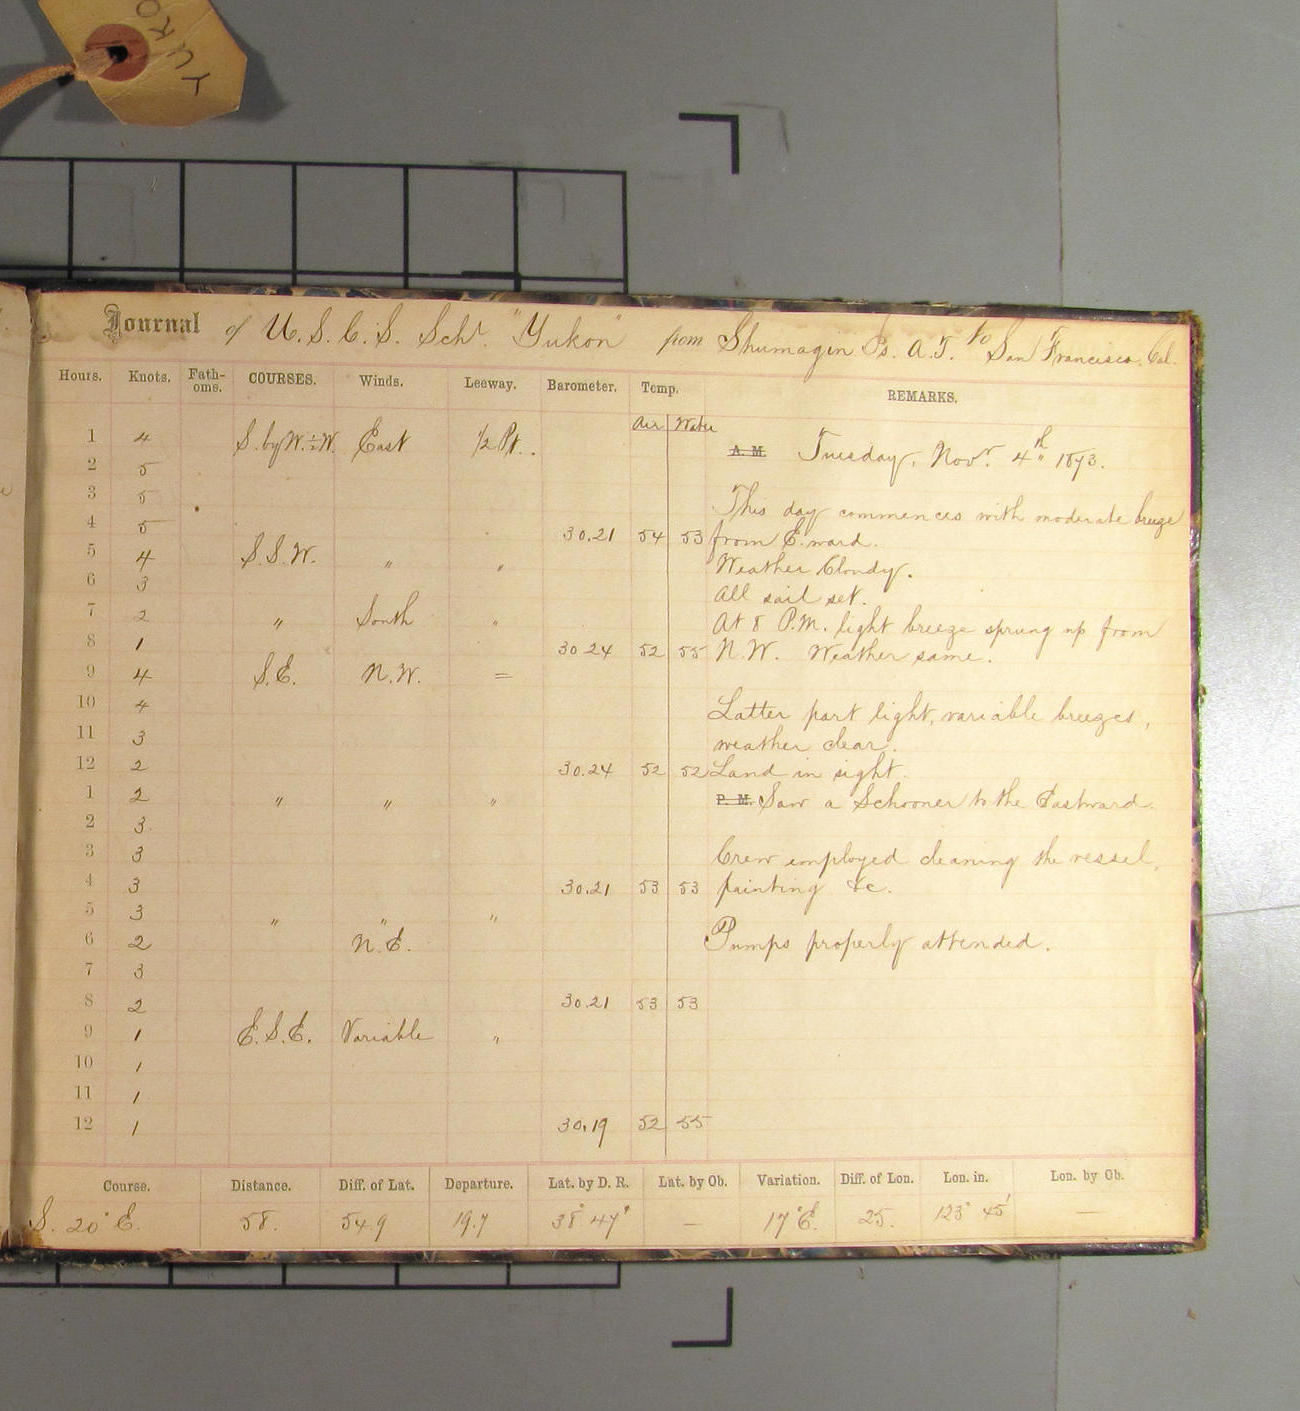 YUKO
Journal of U.S.C.S. Schr. "Yukon" from Shumagin Is. A.T. to San Francisco. Cal.
Hours. Knots. Fath-oms. COURSES. Winds. Leeway. Barometer. Temp. REMARKS.
Air Water
1 4 S. by W. ½ W. East ½ Pt. A. M. Tuesday, Novr. 4th 1873.
2 5
3 5 This day commences with moderate breeze
4 5 30.21 54 53 from E.ward.
5 4 S.S.W. " " Weather Cloudy.
6 3 All sail set.
7 2 " South " At 8 P.M. light breeze sprung up from
8 1 30.24 52 55 N.W. Weather same.
9 4 S.E. N.W. =
10 4 Latter part light, variable breezes,
11 3 weather clear.
12 2 30.24 52 52 Land in sight.
1 2 " " " P. M. Saw a Schooner to the Eastward.
2 3
3 3 Crew employed cleaning the vessel,
4 3 30.21 53 53 painting &c.
5 3 " " "
6 2 N.E. Pumps properly attended.
7 3
8 2 30.21 53 53
9 1 E.S.E. Variable "
10 1
11 1
12 1 30.19 52 55
Course. Distance. Diff. of Lat. Departure. Lat. by D. R. Lat. by Ob. Variation. Diff. of Lon. Lon. in. Lon. by Ob.
S. 20° E. 58. 54.9 19.7 38° 47' — 17° E. 25. 123° 45' —